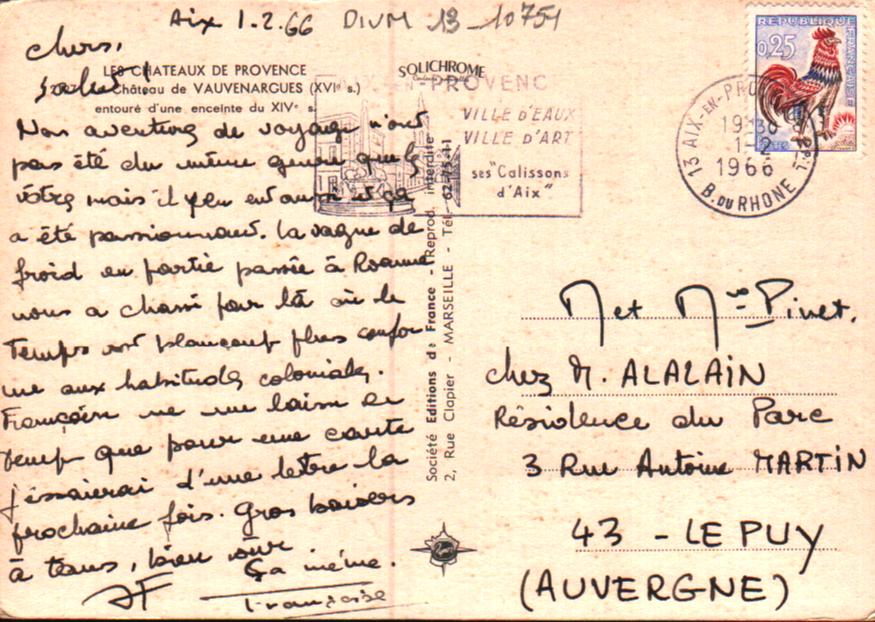 Aix 1.2.66 DIVM 13-10751
chers,
salut!
LES CHATEAUX DE PROVENCE
Château de VAUVENARGUES (XVIe s.)
entouré d'une enceinte du XIVe s.
Nos aventures de voyage n'ont
pas été du même genre que les
vôtres mais il y en eu aussi et ça
a été passionnant. La vague de
froid en partie passée à Roanne
nous a chassé par là où le
temps est plus confor
me aux habitudes coloniales.
Françoise ne me laisse le
temps que pour une carte
j'essaierai d'une lettre la
prochaine fois. Gros baisers
à tous, bien sûr
Ga même.
JF Françoise
SOLICHROME
Société Editions de France - Reprod. interdite
2, Rue Clapier - MARSEILLE - Tél. 62-75-11
AIX-EN-PROVENC
VILLE D'EAUX
VILLE D'ART
ses "Calissons
d'Aix"
13 AIX-EN-PRO
19H30
1-2
1966
B. DU RHONE
REPUBLIQUE FRANCAISE
0,25
M et Mme Pinet.
chez M. ALALAIN
Résidence du Parc
3 Rue Antoine MARTIN
43 - LE PUY
(AUVERGNE)